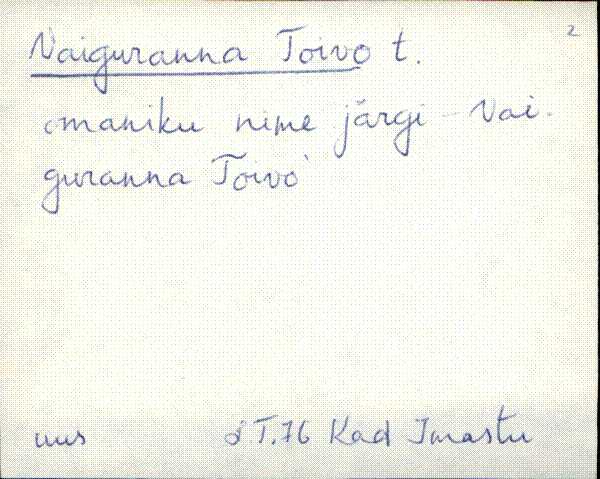 2
Vaiguranna Toivo t.
omaniku nime järgi - Vai-
guranna Toivo
uus T.76 Kad Imastu